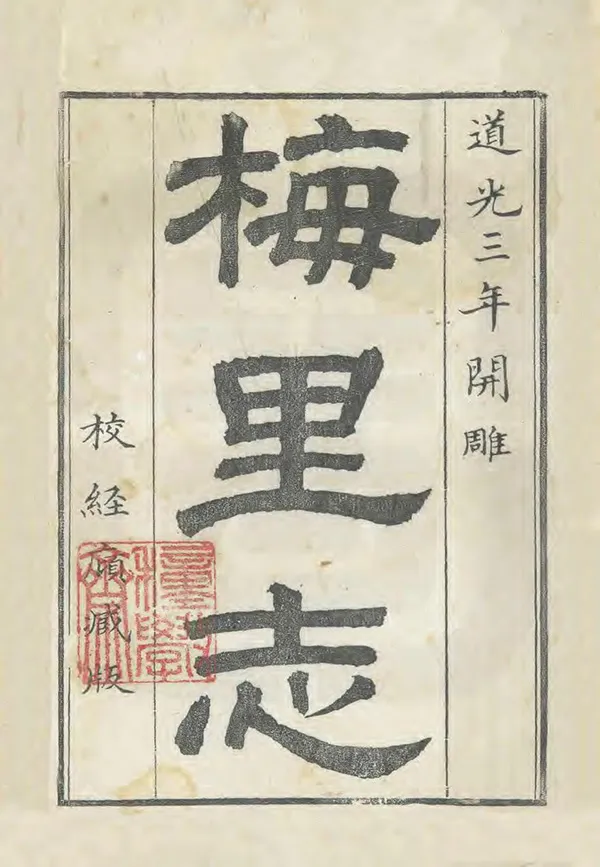 道光三年開雕
梅里志
校經廎臧版